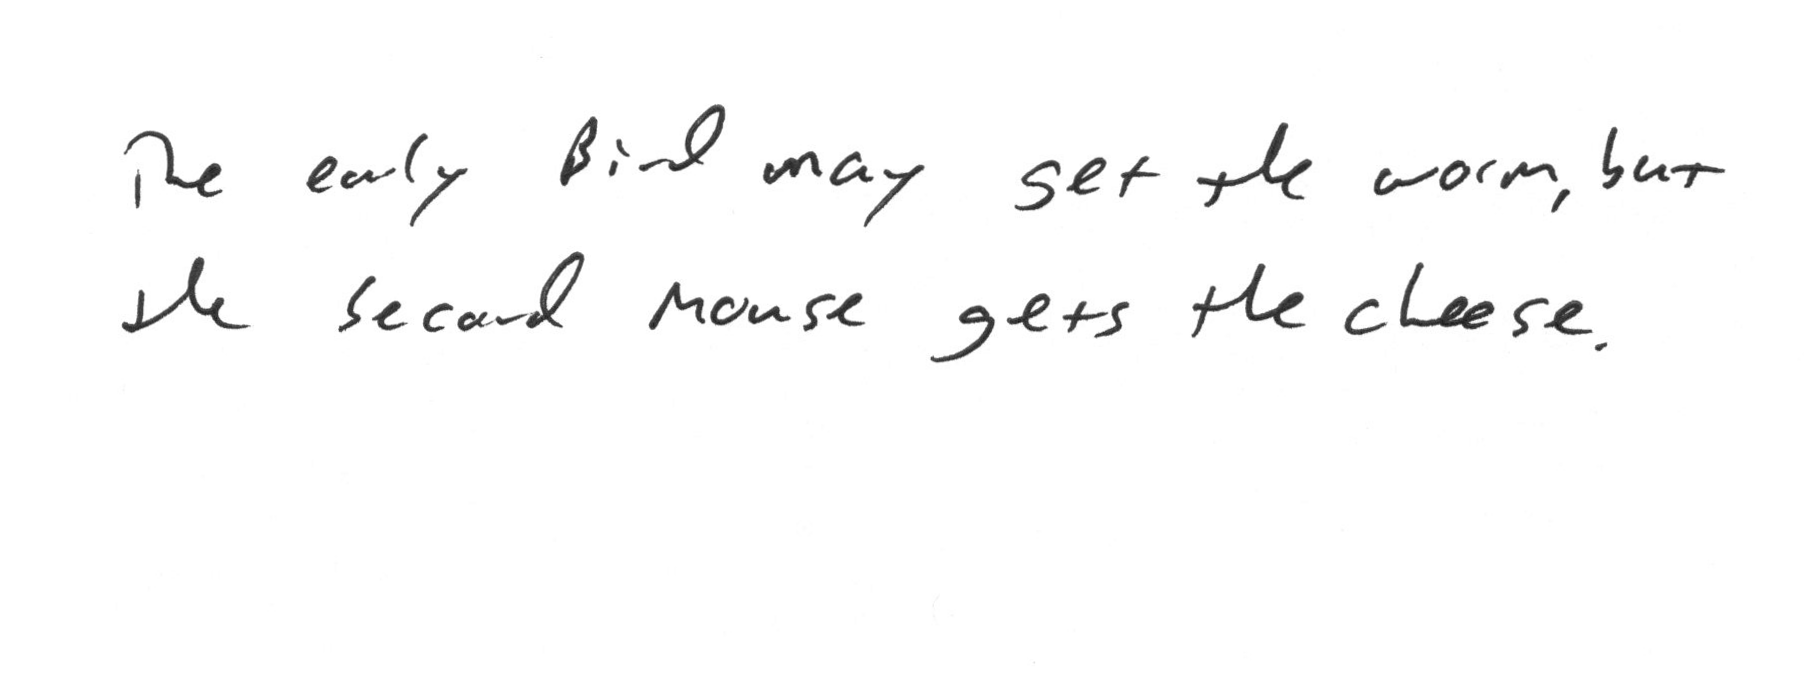 The early Bird may get the worm, but
the second mouse gets the cheese.